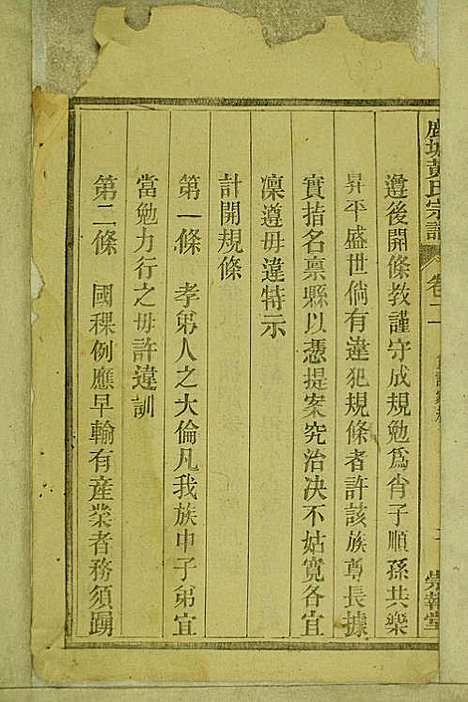 黃氏宗譜
卷二
遵後開條教謹守成規勉爲肖子順孫共樂
昇平盛世倘有違犯規條者許該族尊長據
實指名禀縣以憑提案究治决不姑寬各宜
凜遵毋違特示
計開規條
第一條　孝弟人之大倫凡我族中子弟宜
當勉力行之毋許違訓
第二條　國稞例應早輸有產業者務須踴